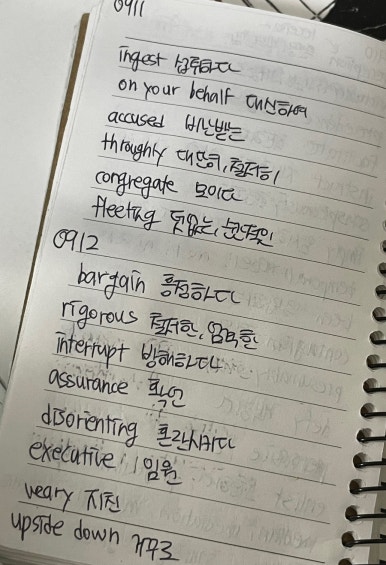 0911
ingest 섭취하다
on your behalf 대신하여
accused 비난받는
throughly 대단히, 철저히
congregate 모이다
fleeting 덧없는,
0912
bargain 흥정하다
rigorous 철저한, 엄격한
interrupt 방해하다
assurance 확언
disorienting 혼란시키다
executive 임원
weary 지친
upside down 거꾸로